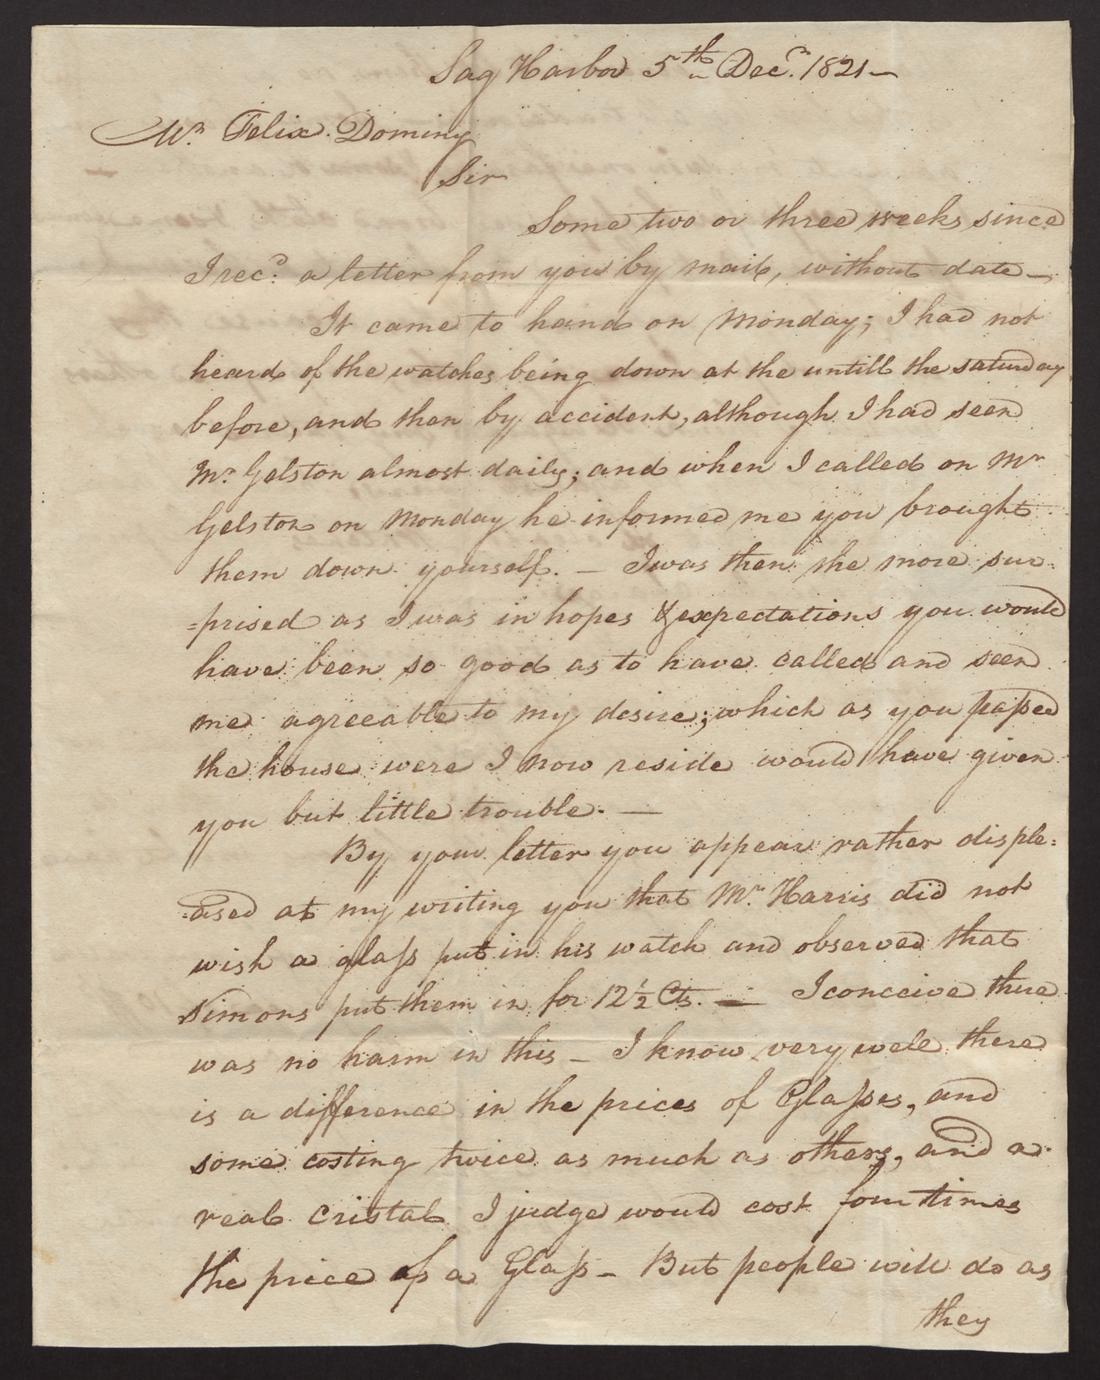 Sag Harbor 5th Decr. 1821 —
Mr. Felix Dominy
Sir
Some two or three weeks since
I recd. a letter from you by mail, without date —
It came to hand on Monday; I had not
heard of the watches being down at the untill the saturday
before, and then by accident, although I had seen
Mr. Gelston almost daily; and when I called on Mr
Gelston on Monday he informed me you brought
them down yourself. — I was then the more sur-
=prised as I was in hopes & expectations you would
have been so good as to have called and seen
me agreeable to my desire; which as you paſsed
the house were I now reside would have given
you but little trouble. —
By your letter you appear rather disple=
=ased at my writing you that Mr. Harris did not
wish a glaſs put in his watch and observed that
Simons put them in for 12½ Cts. — I conceive there
was no harm in this — I know very well there
is a difference in the prices of Glaſses, and
some costing twice as much as others, and a
real cristal I judge would cost four times
the price of a Glaſs — But people will do as
they